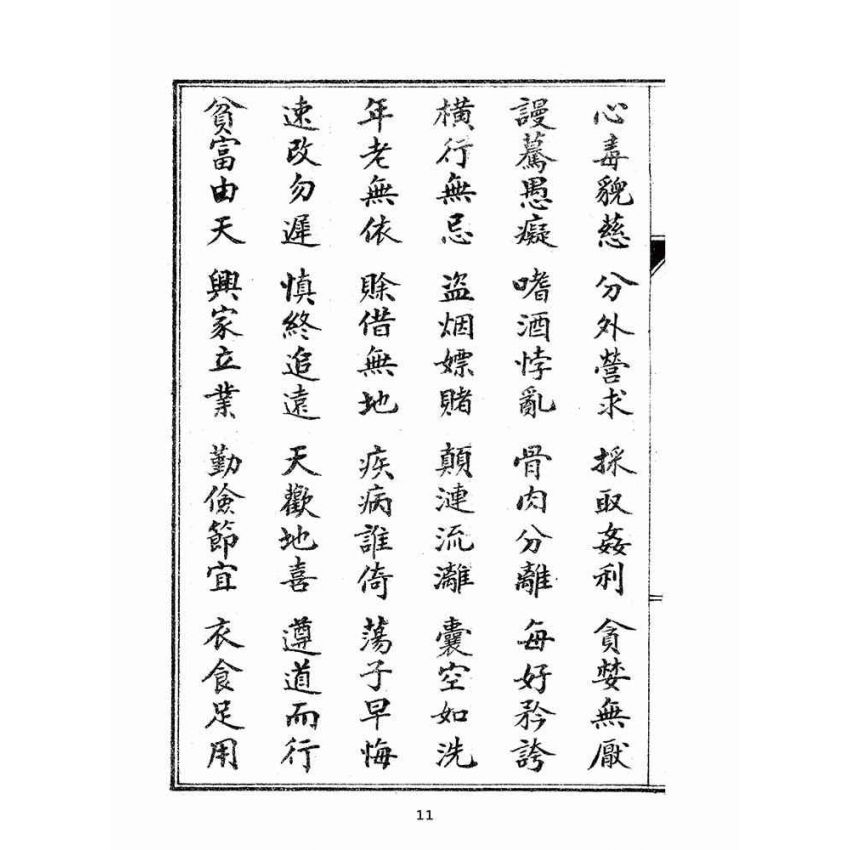 心毒貌慈 分外營求 採取姦利 貪婪無厭
謾驀愚癡 嗜酒悖亂 骨肉分離 每好矜誇
橫行無忌 盜烟嫖賭 顛漣流灕 囊空如洗
年老無依 賒借無地 疾病誰倚 蕩子早悔
速改勿遲 慎終追遠 天歡地喜 遵道而行
貧富由天 興家立業 勤儉節宜 衣食足用
11